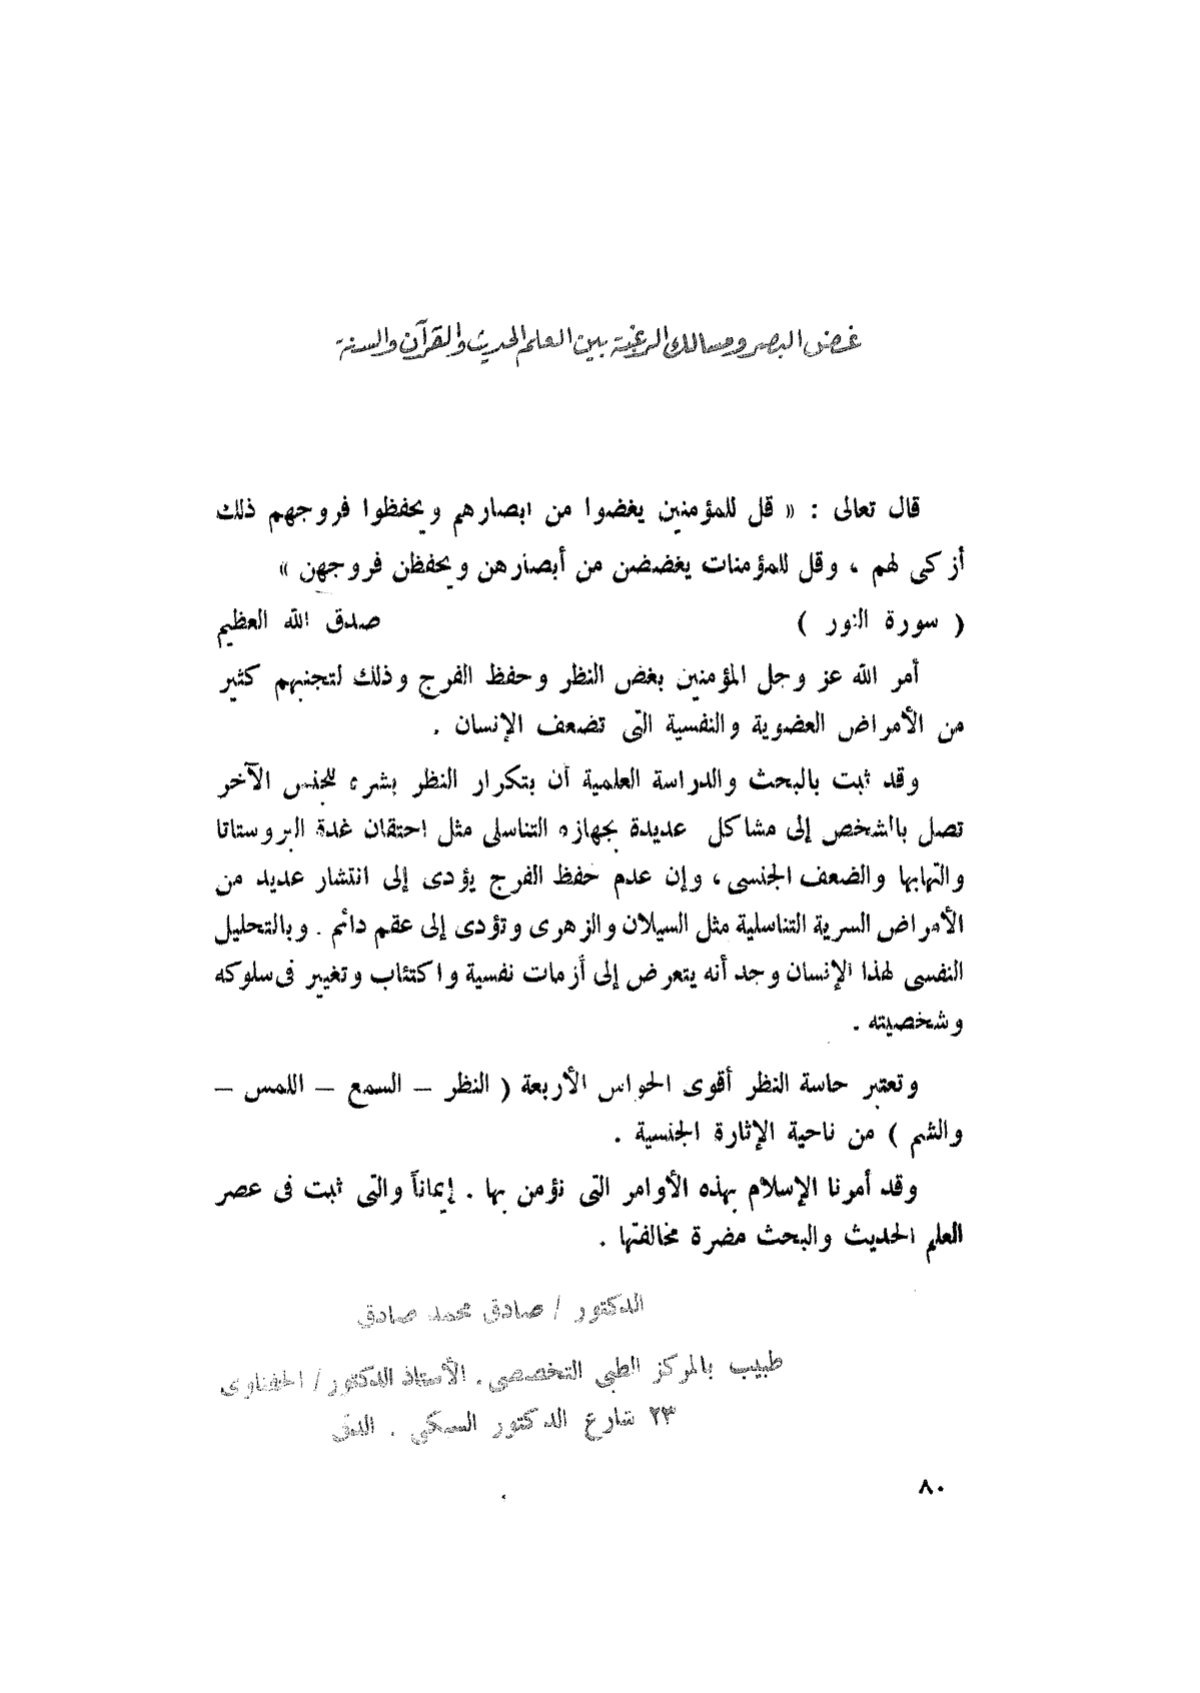 غض البصر ومسالك الرغبة بين العلم الحديث والقرآن والسنة
قال تعالى : « قل للمؤمنين يغضوا من ابصارهم ويحفظوا فروجهم ذلك
أزكى لهم ، وقل للمؤمنات يغضضن من أبصارهن ويحفظن فروجهن »
( سورة النور ) صدق الله العظيم
أمر الله عز وجل المؤمنين بغض النظر وحفظ الفرج وذلك لتجنبهم كثير
من الأمراض العضوية والنفسية التى تضعف الإنسان .
وقد ثبت بالبحث والدراسة العلمية أن بتكرار النظر بشره للجنس الآخر
تصل بالشخص إلى مشاكل عديدة بجهازه التناسلى مثل احتقان غدة البروستاتا
والتهابها والضعف الجنسى ، وإن عدم حفظ الفرج يؤدى إلى انتشار عديد من
الأمراض السرية التناسلية مثل السيلان والزهرى وتؤدى إلى عقم دائم . وبالتحليل
النفسى لهذا الإنسان وجد أنه يتعرض إلى أزمات نفسية واكتئاب وتغيير فى سلوكه
وشخصيته .
وتعتبر حاسة النظر أقوى الحواس الأربعة ( النظر – السمع – اللمس –
والشم ) من ناحية الإثارة الجنسية .
وقد أمرنا الإسلام بهذه الأوامر التى نؤمن بها . إيماناً والتى ثبت فى عصر
العلم الحديث والبحث مضرة مخالفتها .
الدكتور / صادق محمد صادق
طبيب بالمركز الطبى التخصصى . الأستاذ الدكتور / الحفناوى
٢٣ شارع الدكتور السبكى . الدقى
٨٠